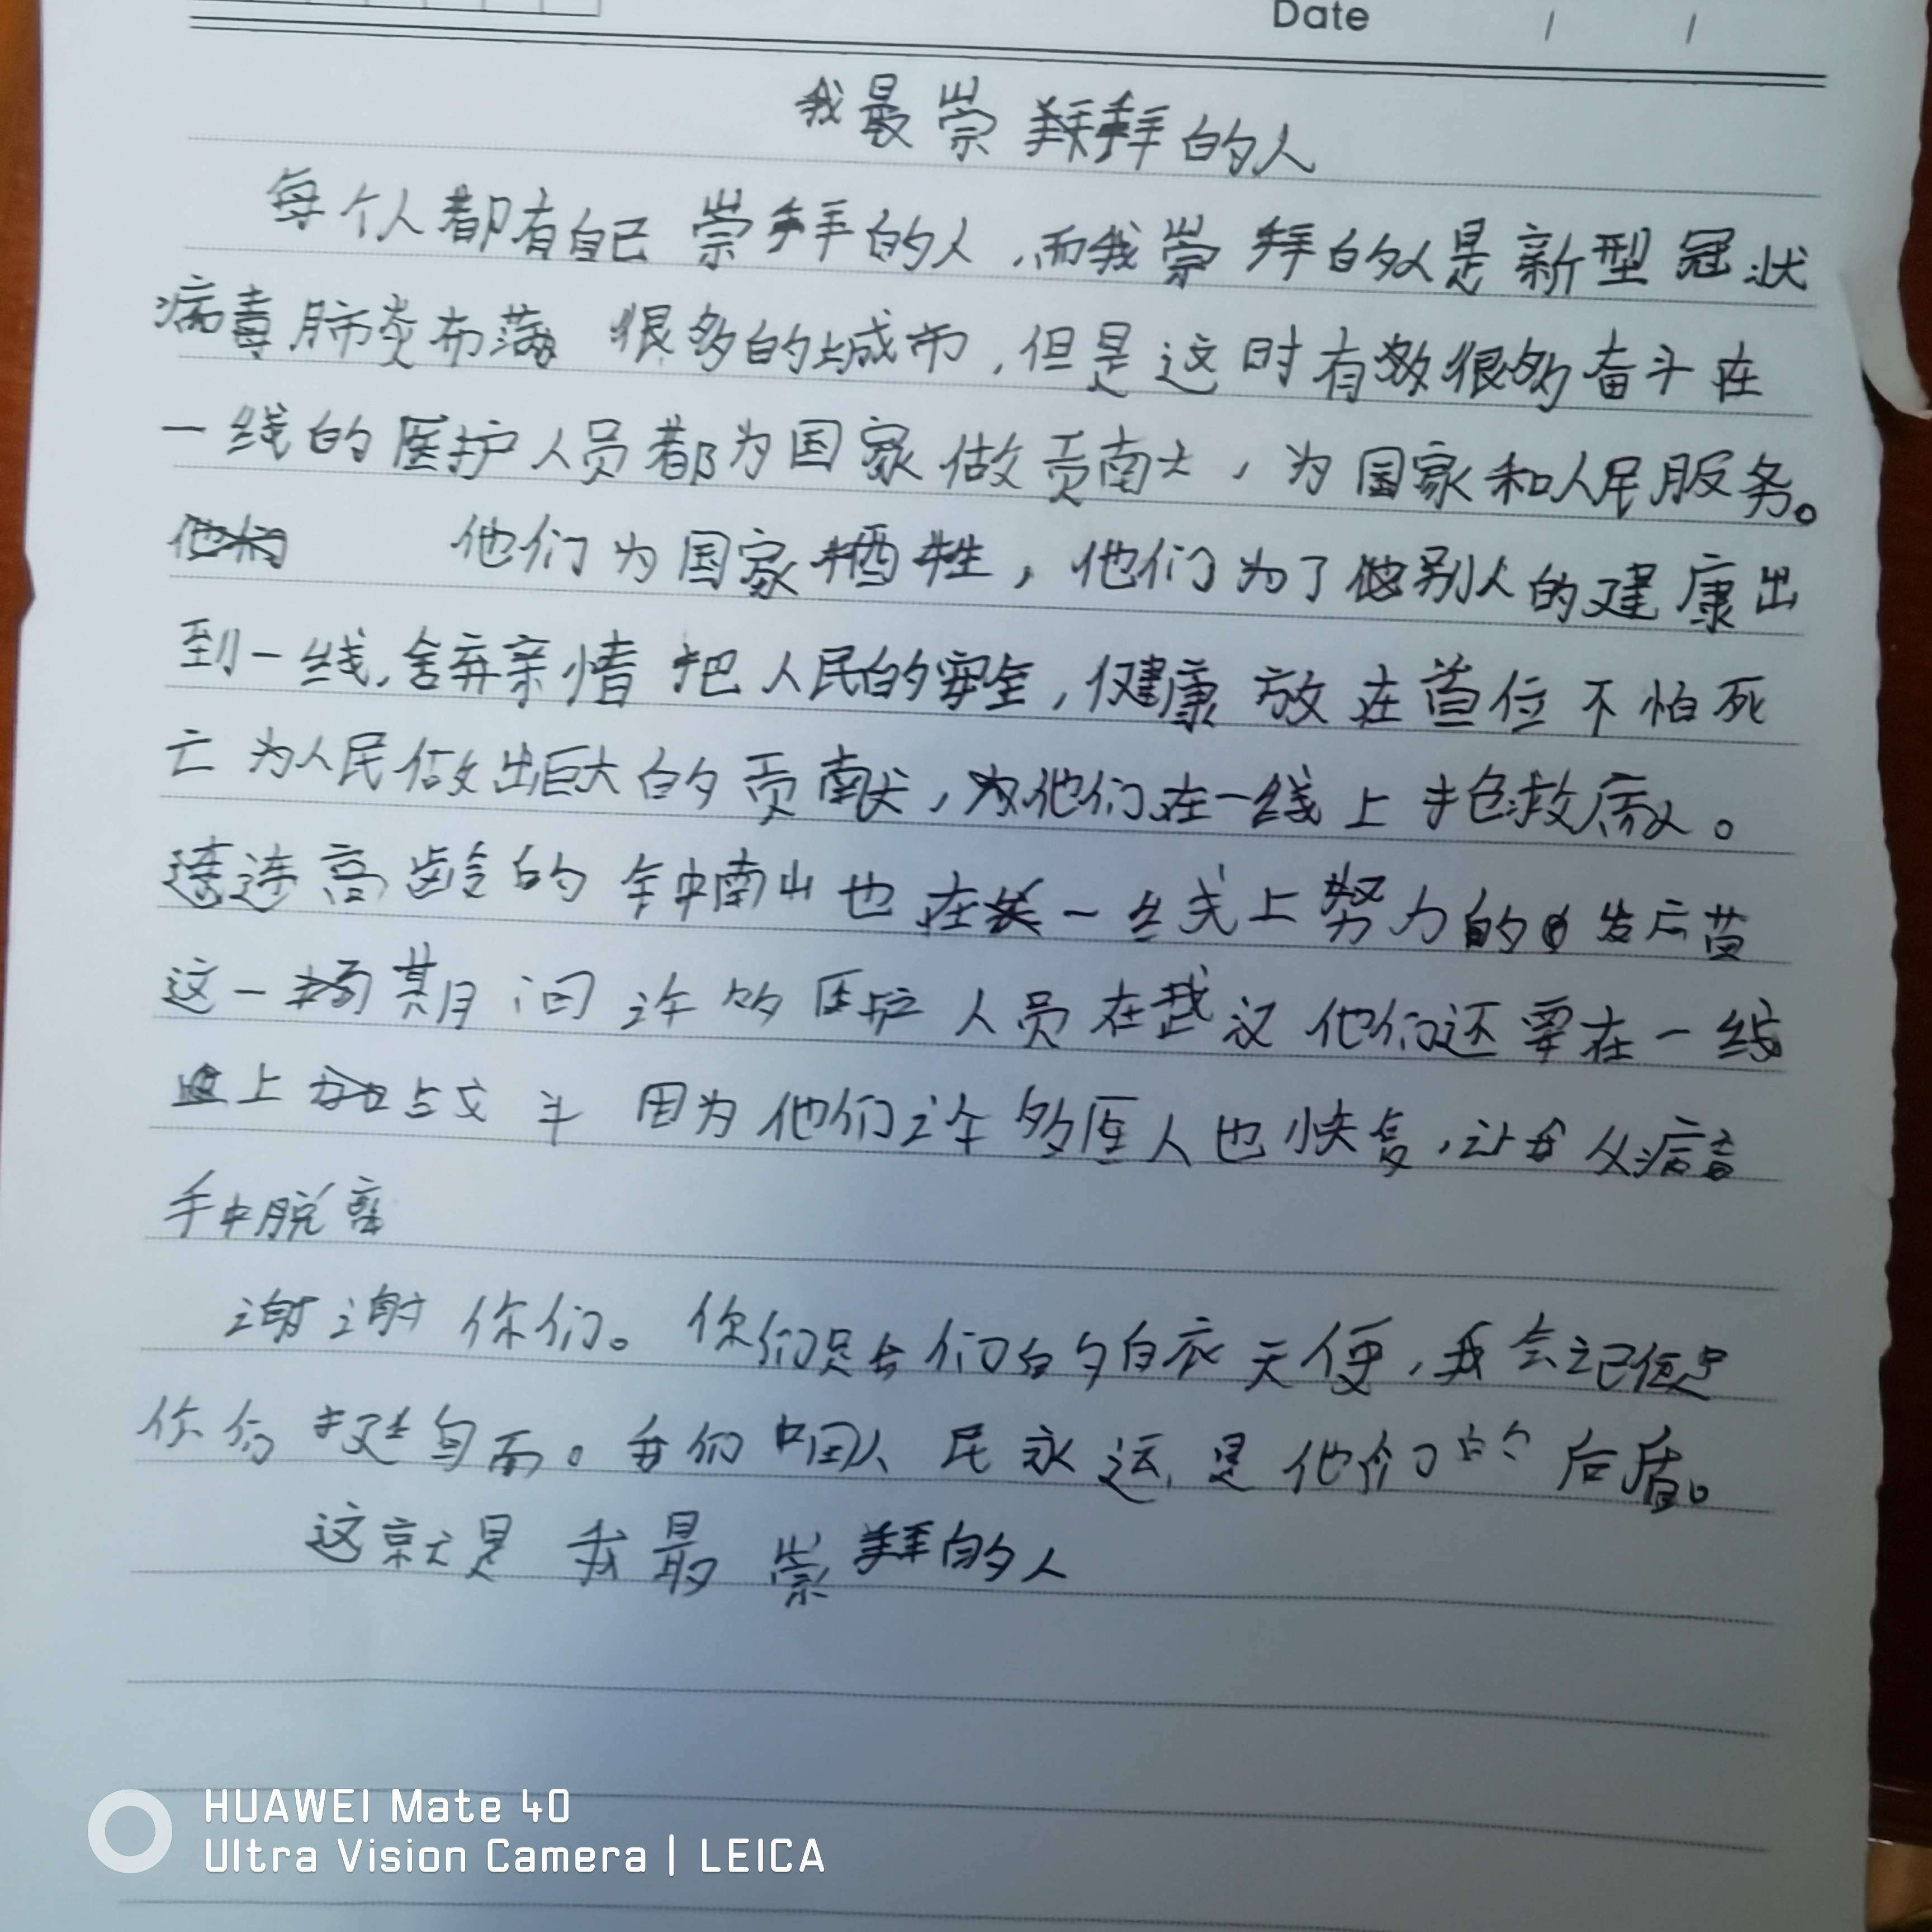 Date / /
我最崇拜的人
每个人都有自己崇拜的人,而我崇拜的人是新型冠状
病毒肺炎布满很多的城市,但是这时有很多奋斗在
一线的医护人员都为国家做贡献,为国家和人民服务。
他们为国家牺牲,他们为了别人的建康出
到一线,舍弃亲情把人民的安全,健康放在首位不怕死
亡为人民做出巨大的贡献,他们在一线上抢救病人。
连高龄的钟南山也在一线上努力的发后苗
这一场期间许多医护人员在武汉他们还要在一线
上战斗因为他们许多医人也恢复,让我从病毒
手中脱离
谢谢你们。你们是我们的白衣天使,我会记住是
你们挺身而。我们中国人民永远是他们的后盾。
这就是我最崇拜的人
HUAWEI Mate 40
Ultra Vision Camera | LEICA